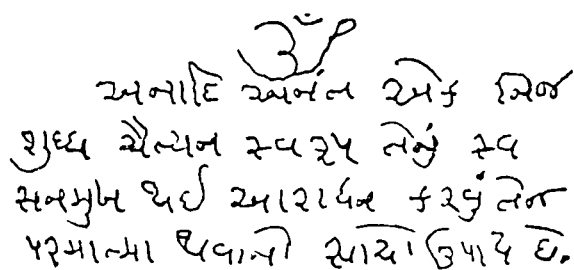 ૐ
અનાદિ અનંત એક નિજ
શુધ્ધ ચૈતન્ય સ્વરૂપ તેનું સ્વ
સનમુખ થઈ આરાધન કરવું તેજ
પરમાત્મા થવાનો સાચો ઉપાય છે.